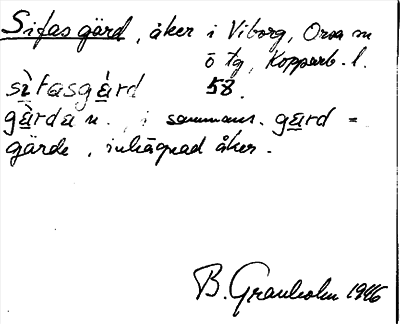 Sifasgärd, åker i Viborg, Orsa sn
ö tg, Kopparb. l.
sìfasgá̱rd 58.
gà̱rda n. , i sammans. ga̱rd =
gärde, inhägnad åker.
B. Granholm 1946